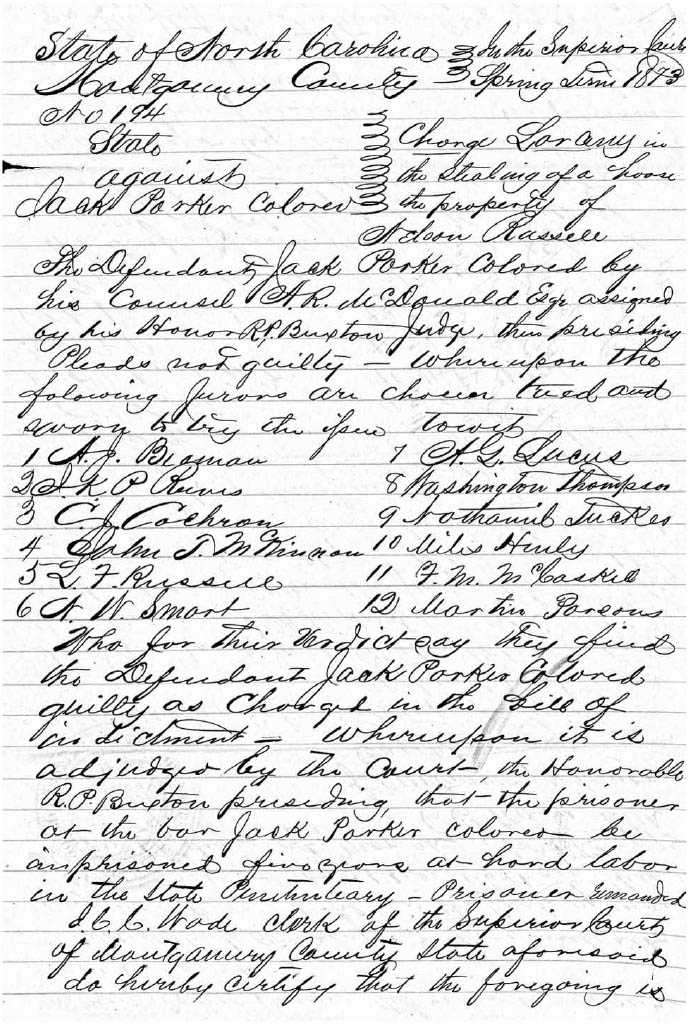 State of North Carolina In the Superior Court
Montgomery County Spring Term 1873
No 194
State Charge Larceny in
against the Stealing of a horse
Jack Parker Colored the property of
Nelson Russell
The Defendant, Jack Parker Colored by
his Counsel A.R. McDonald Esqr assigned
by his Honor R.P. Buxton Judge, then presiding
Pleads not guilty — Whereupon the
folowing Jurors are chosen tried and
sworn to try the issue towit
1 A.J. Beaman 7 A.G. Lucus
2 J.K.P. 8 Washington Thompson
3 C.J. Cochron 9 Nathanil Tucker
4 John T. McKinnon 10 Miles Henly
5 L.F. Russell 11 F.M. McCaskill
6 N.W. Smart 12 Martin Parsons
Who for their Verdict say they find
the Defendant Jack Parker Colored
guilty as Charged in the Bill of
indictment — Whereupon it is
adjudged by the Court, the Honorable
R.P. Buxton presiding, that the prisoner
at the bar Jack Parker colored be
imprisoned five years at hard labor
in the State Penitentiary — Prisoner remanded
I C.C. Wade Clerk of the Superior Court
of Montgomery County State aforesaid
do hereby certify that the foregoing is